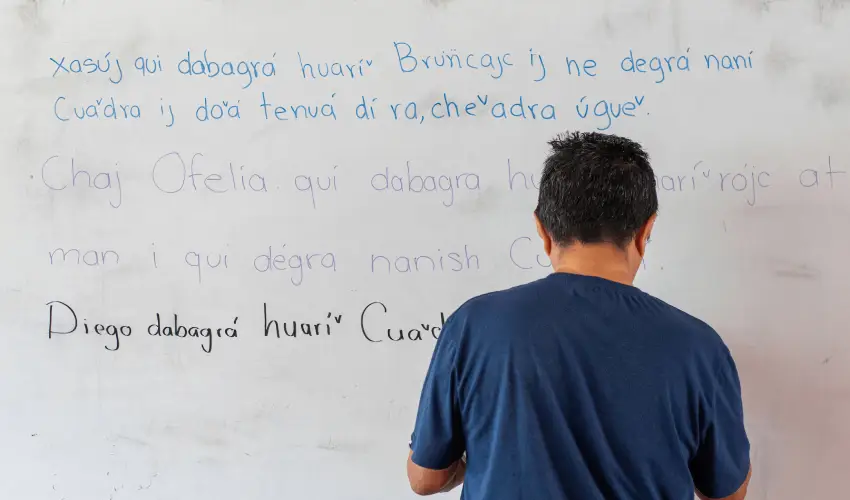 xasúj qui dabagrá huaríᵛ Bruñcajc ij ne degrá naní
Cuaᵛdra ij doᵛá tenuá dí ra, cheᵛadra úgueᵛ.
Chaj Ofelia qui dabagra aríᵛrojc at
man i qui dégra nanish
Diego dabagrá huaríᵛ